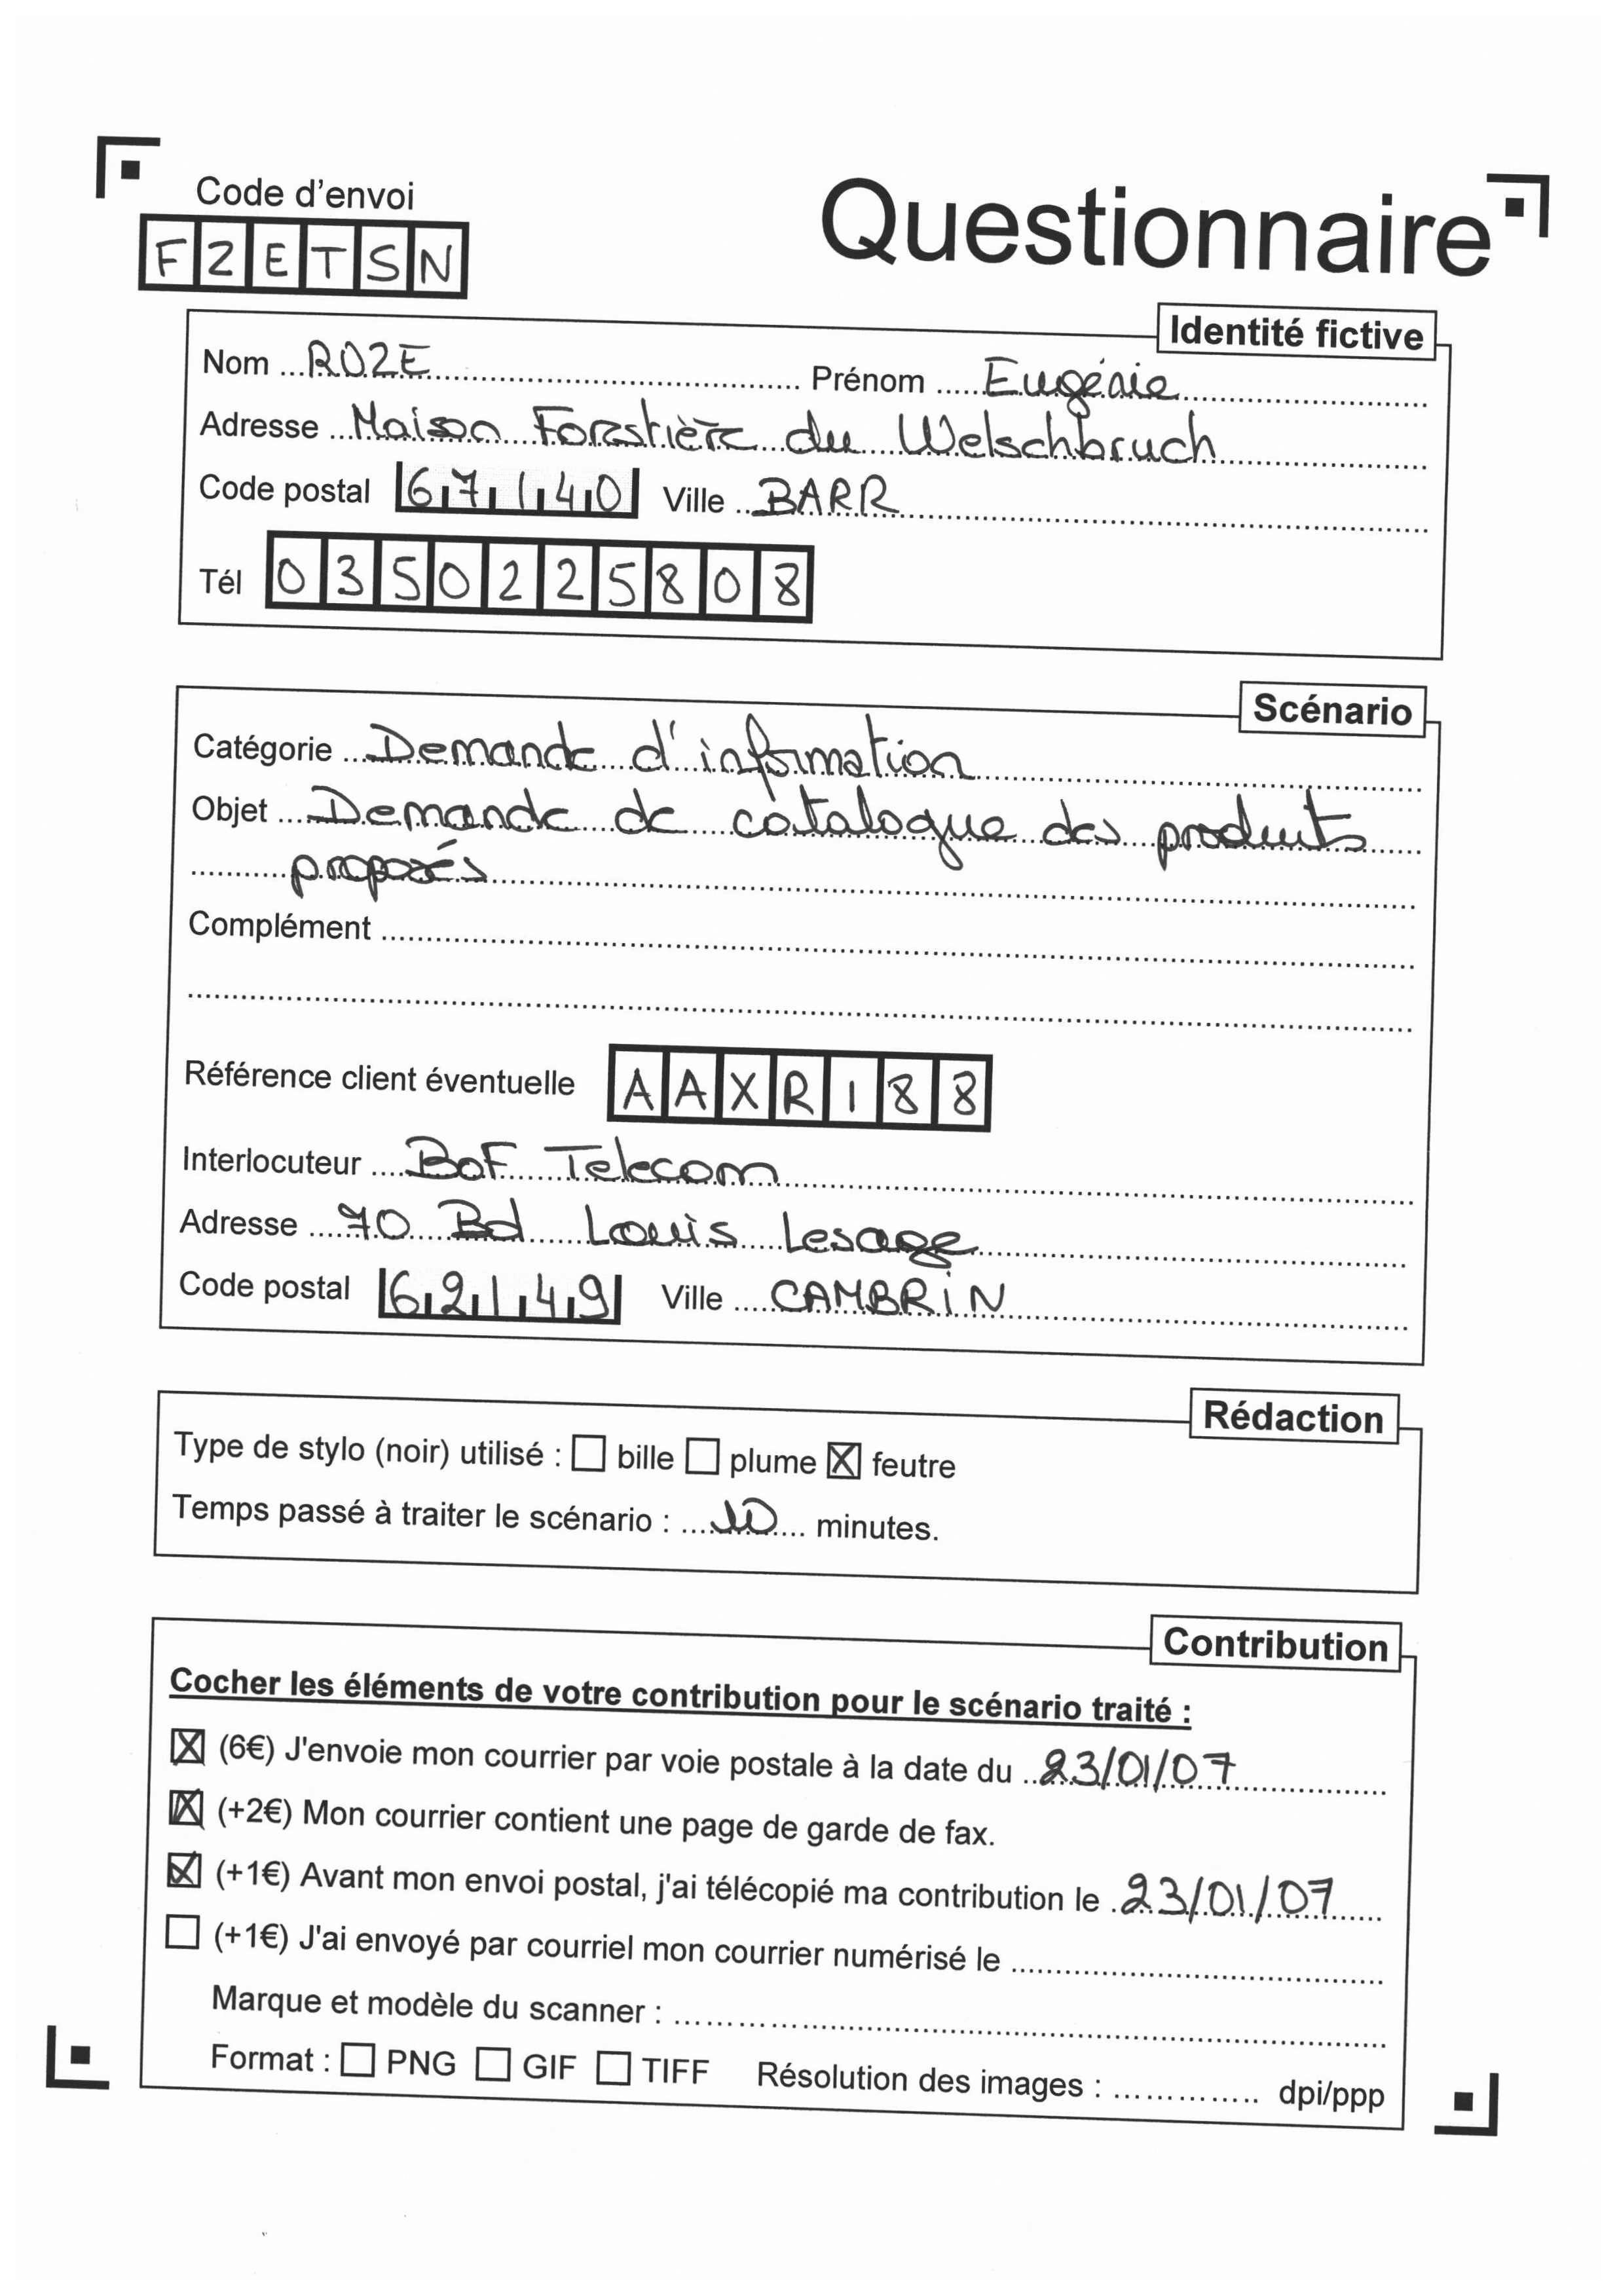 Code d'envoi
Questionnaire
FZETSN
Identité fictive
Nom ROZE Prénom Eugénie
Adresse Maison Forestière du Welschbruch
Code postal 67140 Ville BARR
Tél 0350225808
Scénario
Catégorie Demande d'information
Objet Demande de catalogue des produits
proposés
Complément
Référence client éventuelle AAXR188
Interlocuteur BoF Telecom
Adresse 70 Bd Louis Lesage
Code postal 62149 Ville CAMBRIN
Rédaction
Type de stylo (noir) utilisé : ☐ bille ☐ plume ☒ feutre
Temps passé à traiter le scénario : 10 minutes.
Contribution
Cocher les éléments de votre contribution pour le scénario traité :
☒ (6€) J'envoie mon courrier par voie postale à la date du 23/01/07
☒ (+2€) Mon courrier contient une page de garde de fax.
☒ (+1€) Avant mon envoi postal, j'ai télécopié ma contribution le 23/01/07
☐ (+1€) J'ai envoyé par courriel mon courrier numérisé le
Marque et modèle du scanner :
Format : ☐ PNG ☐ GIF ☐ TIFF Résolution des images : dpi/ppp